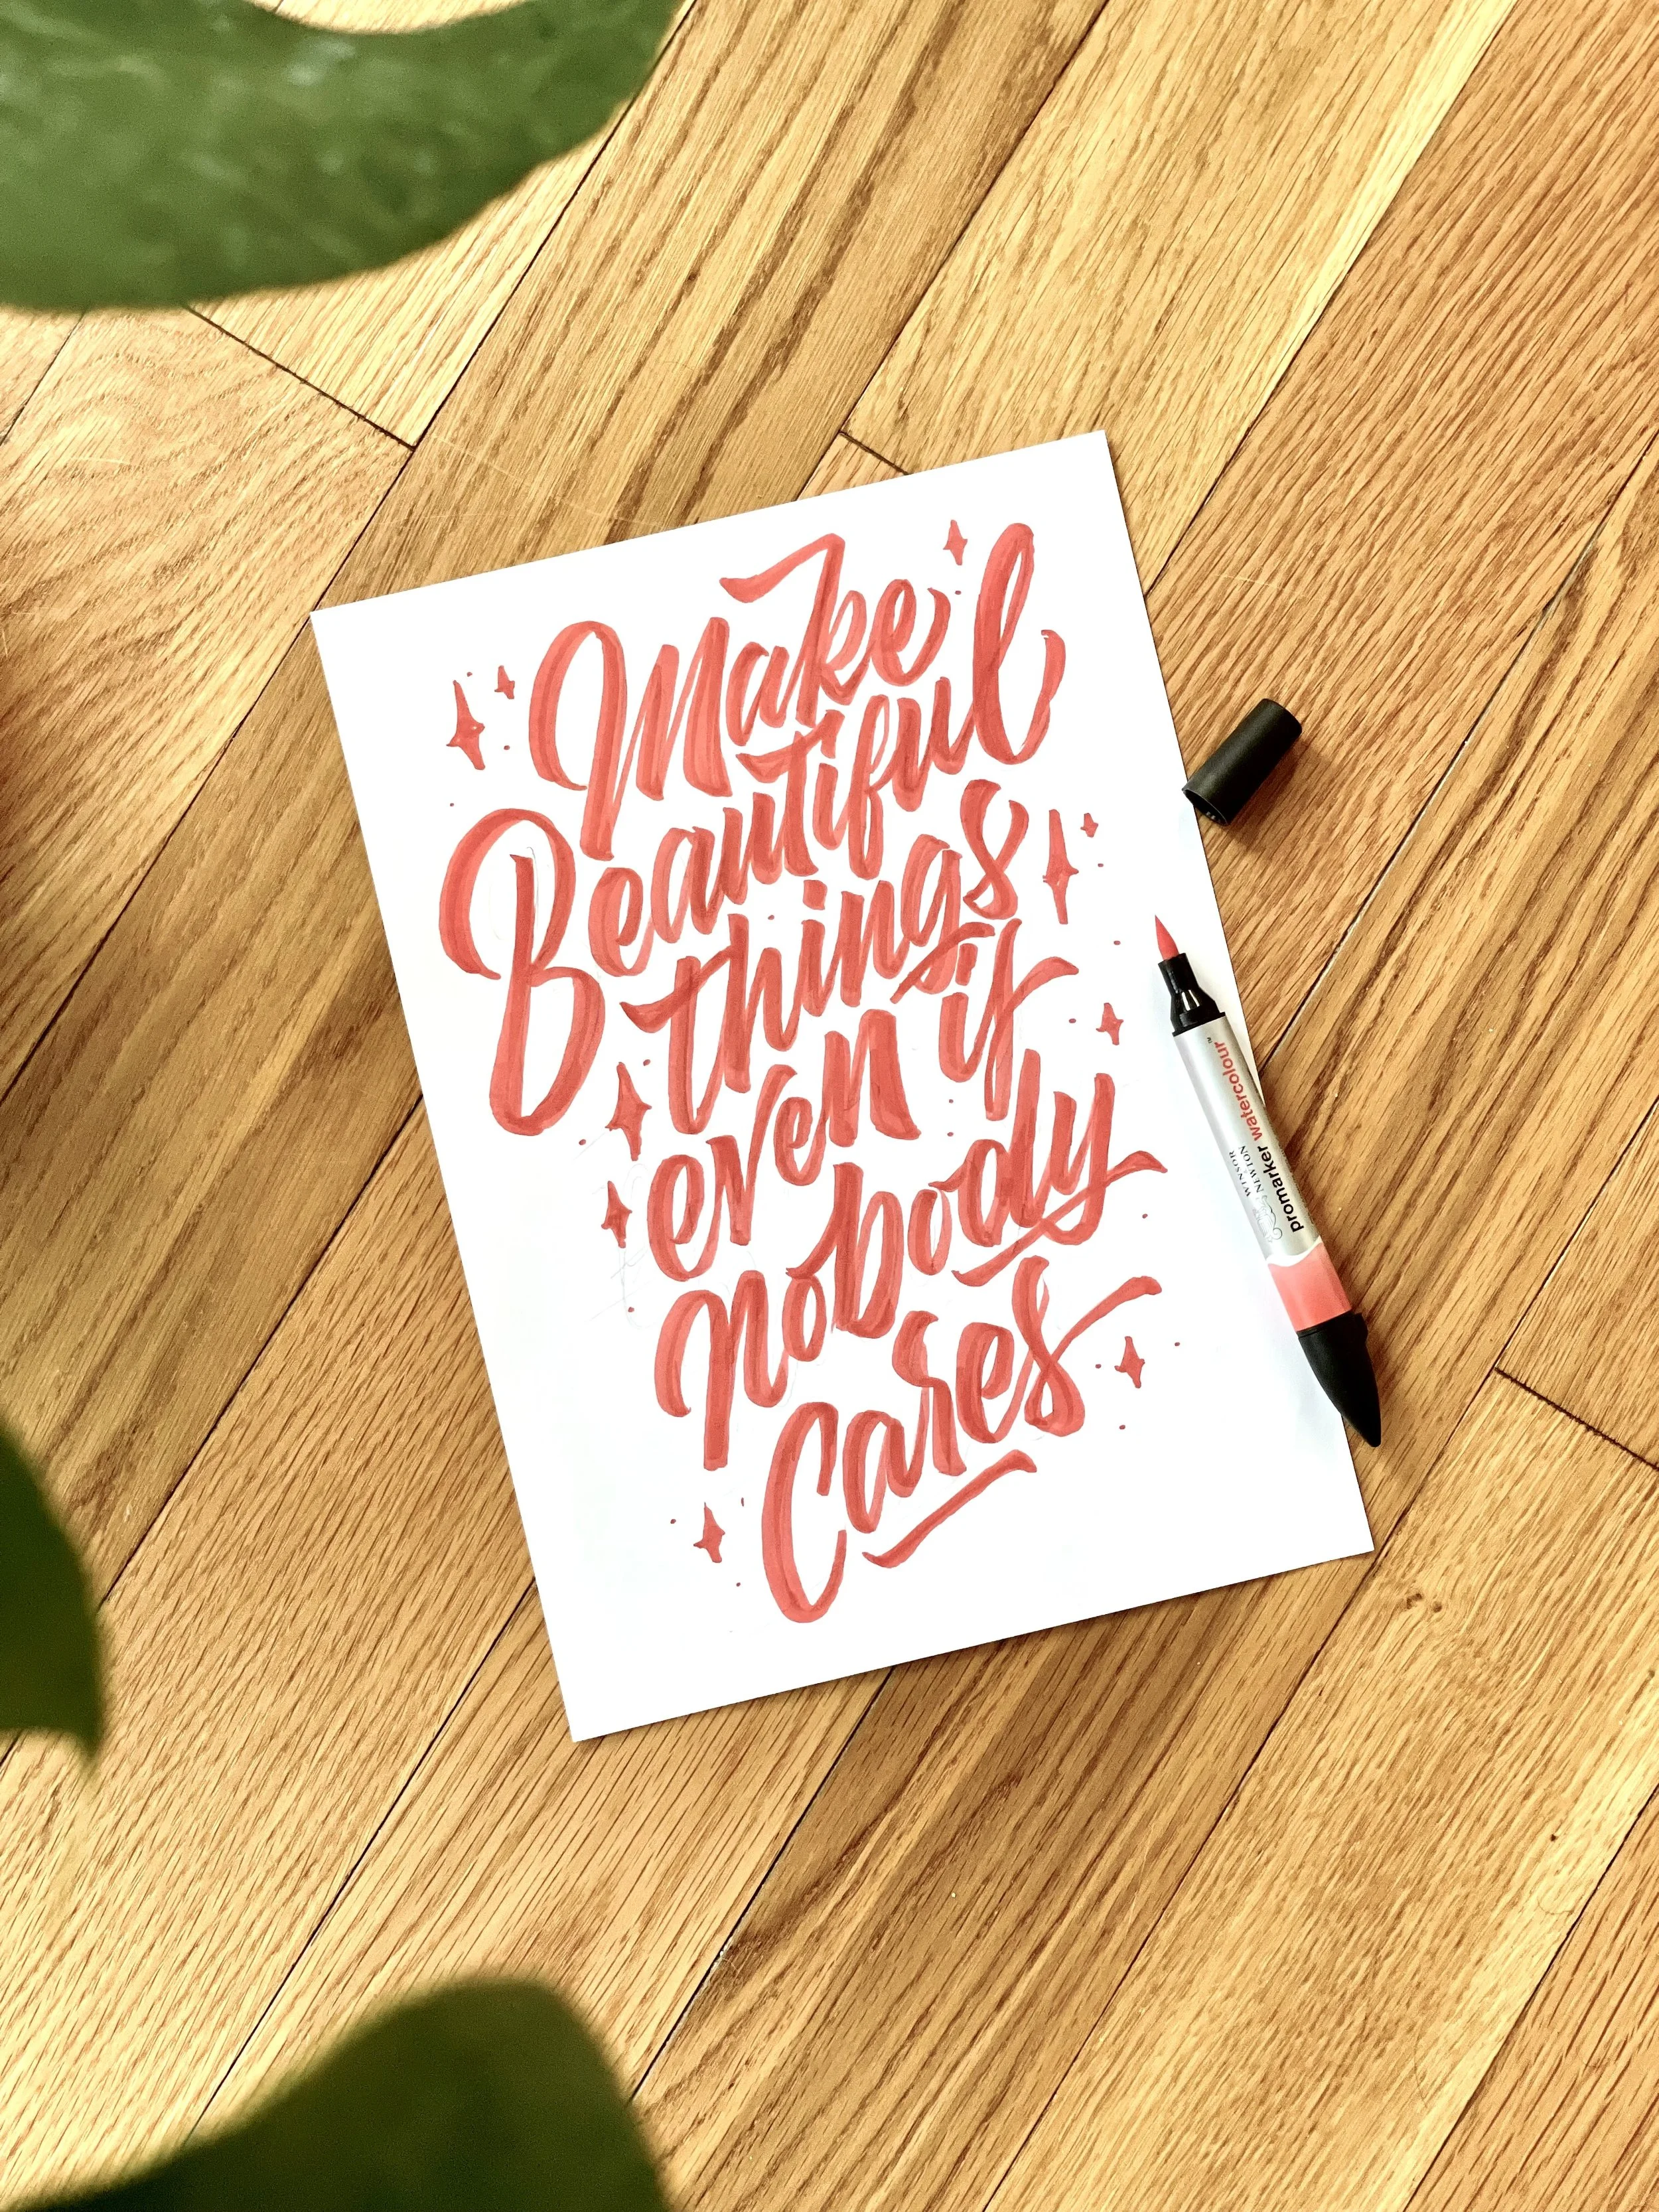 Make
Beautiful
things
even if
nobody
Cares
WINSOR
& NEWTON
promarker watercolour™